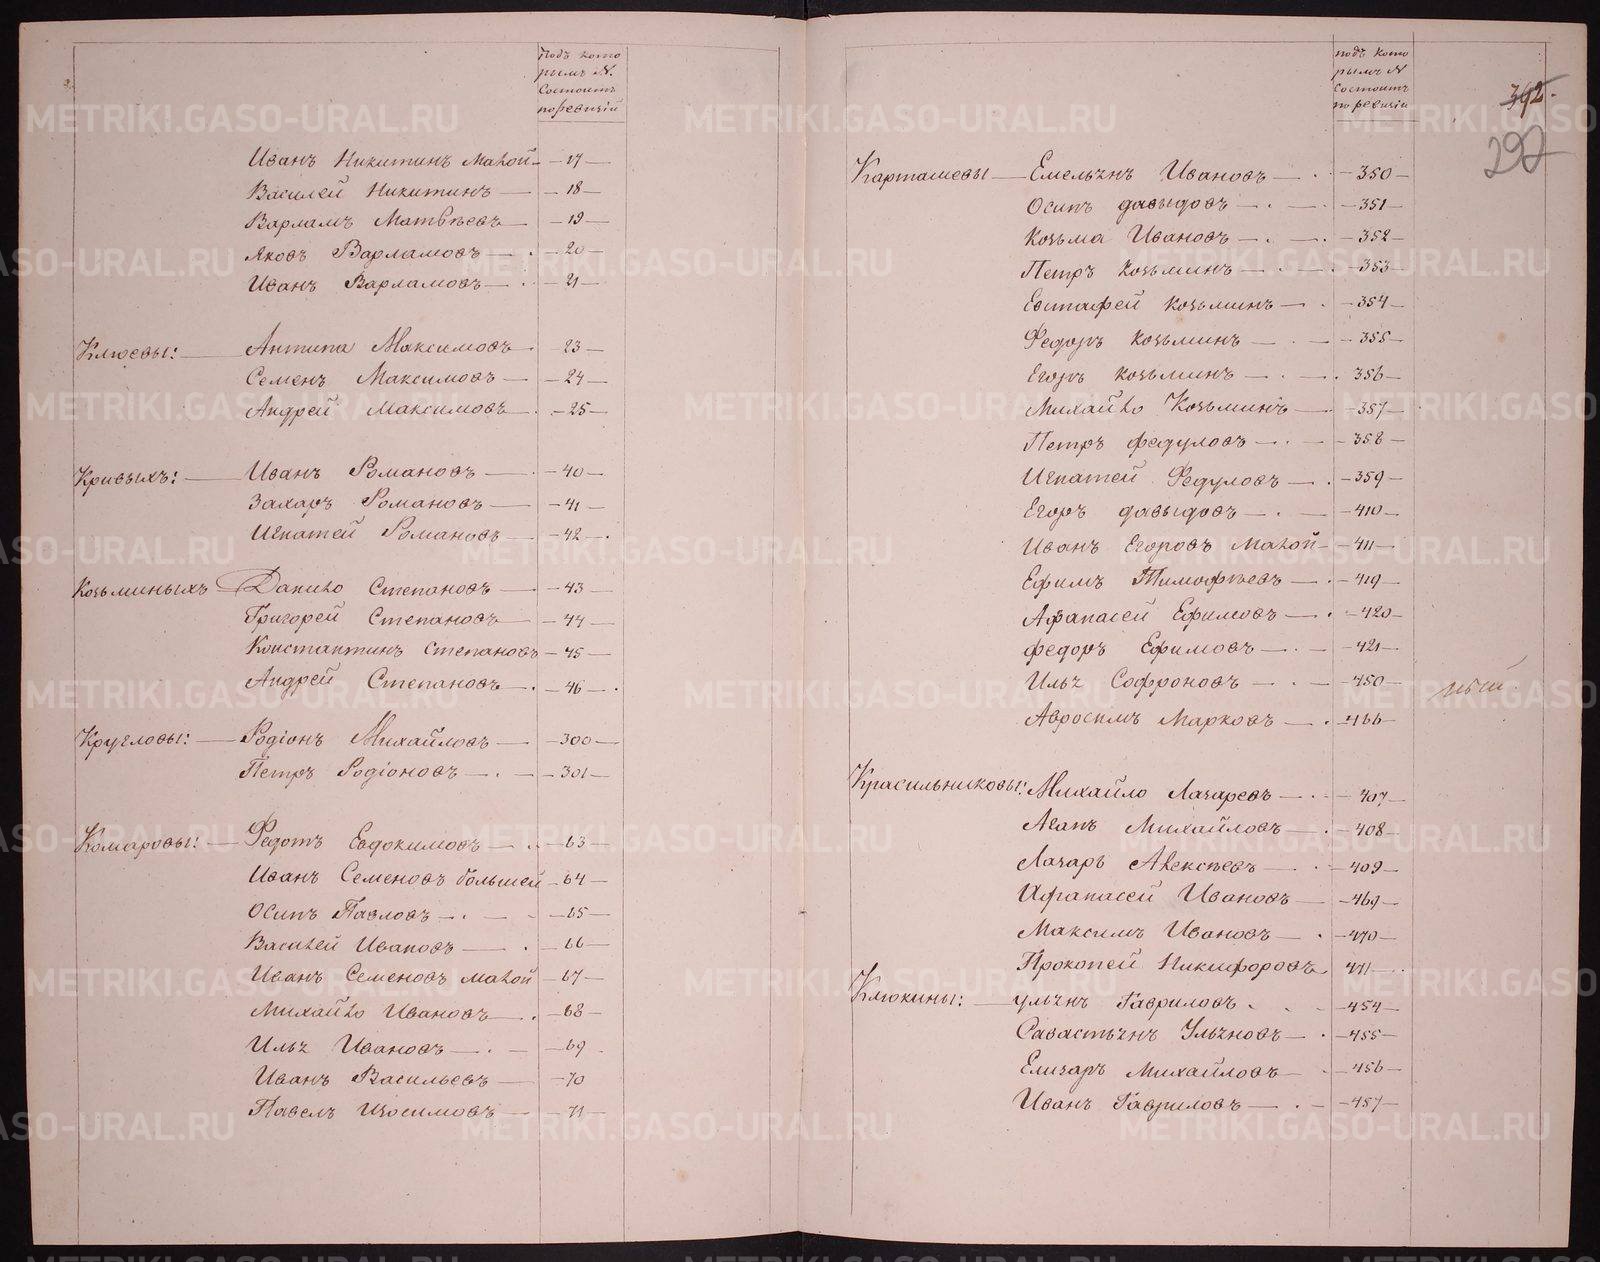 Подъ кото
рымъ №.
Состоитъ
по ревизіи
Иванъ Никитинъ малой — 17 —
Василей Никитинъ — 18 —
Варламъ Матвѣевъ — 19 —
Яковъ Варламовъ — 20 —
Иванъ Варламовъ — 21 —
Клюевы: — Антипа Максимовъ — 23 —
Семенъ Максимовъ — 24 —
Андрей Максимовъ — 25 —
Кривыхъ: — Иванъ Романовъ — 40 —
Захаръ Романовъ — 41 —
Игнатей Романовъ — 42 —
Козьминыхъ Данило Степановъ — 43 —
Григорей Степановъ — 44 —
Константинъ Степановъ — 45 —
Андрей Степановъ — 46 —
Кругловы: — Родіонъ Михайловъ — 300 —
Петръ Родіоновъ — 301 —
Комаровы: — Федотъ Евдокимовъ — 63 —
Иванъ Семеновъ большей — 64 —
Осипъ Павловъ — 65 —
Василей Ивановъ — 66 —
Иванъ Семеновъ малой — 67 —
Михайло Ивановъ — 68 —
Илья Ивановъ — 69
Иванъ Васильевъ — 70
Павелъ Изосимовъ — 71 —
подъ кото
рымъ №
Состоитъ
по ревизіи
392.
292
Карташевы — Емельянъ Ивановъ — 350 —
Осипъ давыдовъ — 351 —
Козьма Ивановъ — 352 —
Петръ Козьминъ — 353 —
Евстафей Козьминъ — 354 —
Федоръ Козьминъ — 355 —
Егоръ Козьминъ — 356 —
Михайло Козьминъ — 357 —
Петръ федуловъ — 358 —
Игнатей Федуловъ — 359 —
Егоръ давыдовъ — 410 —
Иванъ Егоровъ малой — 411 —
Ефимъ Тимофѣевъ — 419 —
Афанасей Ефимовъ — 420 —
федоръ Ефимовъ — 421 —
Илья Софроновъ — 450 —
Авросимъ Марковъ — 466 —
Красильниковы: Михайло Лазаревъ — 407 —
Агапъ Михайловъ — 408 —
Лазарь Алексѣевъ — 409 —
Афанасей Ивановъ — 469 —
Максимъ Ивановъ — 470 —
Прокопей Никифоровъ 471 —
Клюкины: — ульянъ Гавриловъ — 454 —
Савастьянъ Ульяновъ — 455 —
Елизаръ Михайловъ — 456 —
Иванъ Гавриловъ — 457 —
METRIKI.GASO-URAL.RU